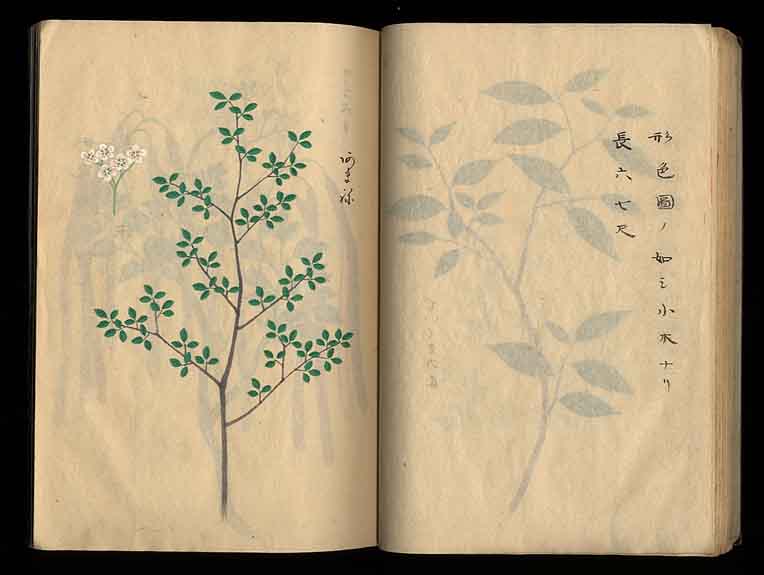 形色圖ノ如シ小木ナリ
長六七尺